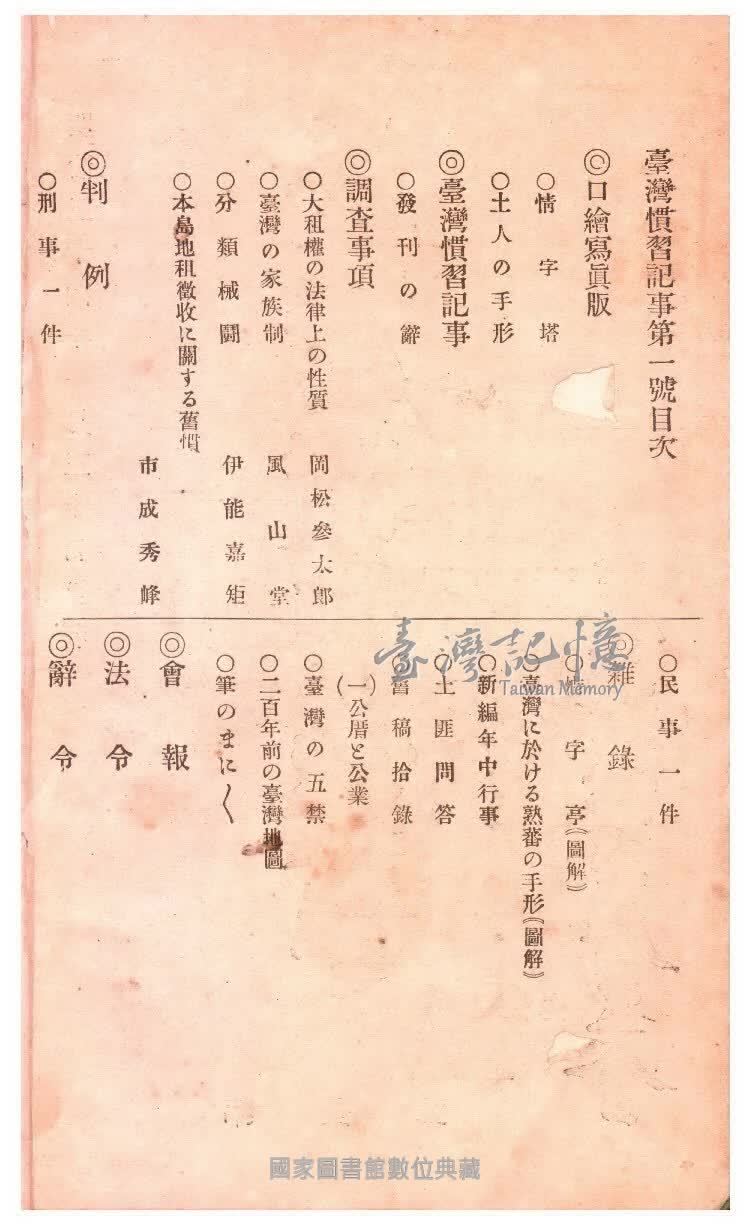 臺灣慣習記事第一號目次
◎口繪寫眞版
○惜字塔
○土人の手形
◎臺灣慣習記事
○發刊の辭
◎調査事項
○大租權の法律上の性質 岡松參太郎
○臺灣の家族制 風山堂
○分類械鬪 伊能嘉矩
○本島地租徵收に關する舊慣
市成秀峰
◎判例
○刑事一件
○民事一件
◎雜錄
○字亭(圖解)
○臺灣に於ける熟蕃の手形(圖解)
○新編年中行事
○土匪問答
○舊稿拾錄
(一)公厝と公業
○臺灣の五禁
○二百年前の臺灣地圖
○筆のまに〱
◎會報
◎法令
◎辭令
臺灣記憶
Taiwan Memory
國家圖書館數位典藏